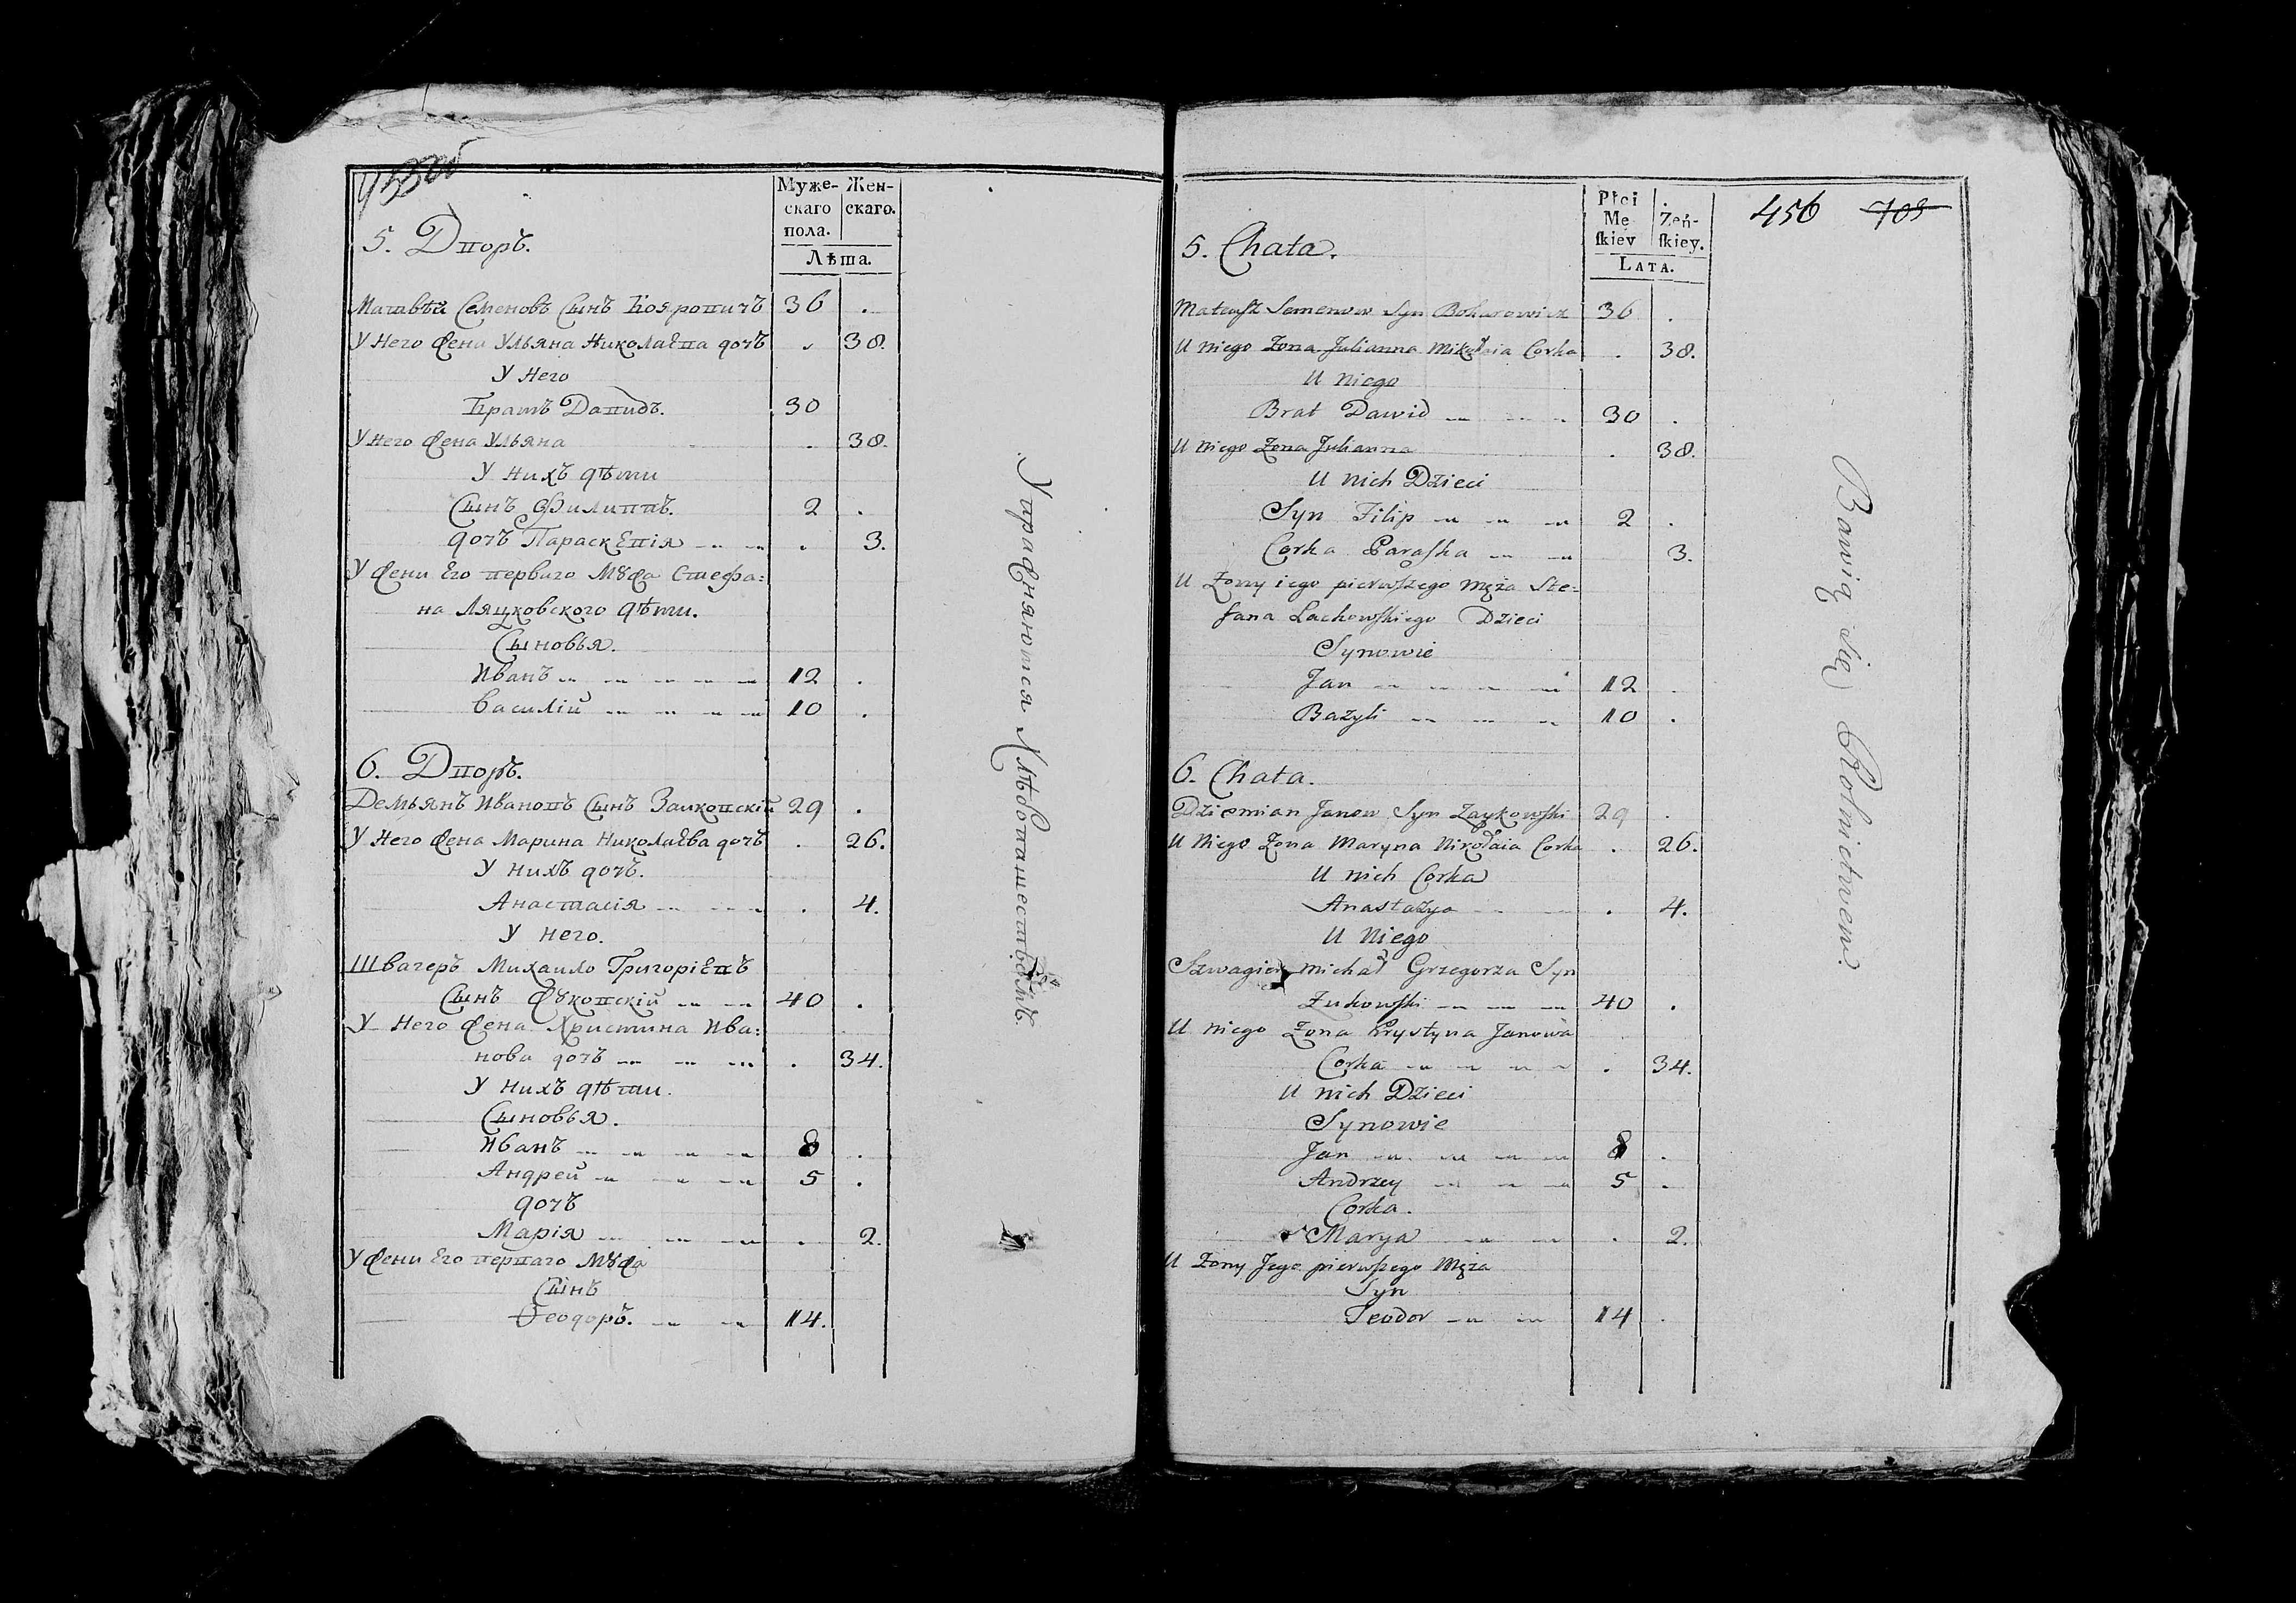 Муже-
скаго
пола.
Жен-
скаго.
Лѣта.
5. Дворъ.
Матвѣй Семеновъ Сынъ Бояровичъ 36 .
У Него Жена Ульяна Николаева дочъ . 38.
У Него
Братъ Давидъ. 30
У Него Жена Ульяна . 38.
У Нихъ дѣти
Сынъ Филиппъ. 2 .
дочъ Параскевія . 3.
У Жени Его первиго Мужа Стефа:
на Ляцковского дѣти.
Сыновья.
Иванъ 12 .
Василій 10 .
6. Дворъ.
Демьянъ Ивановъ Сынъ Заиковскій 29 .
У Него Жена Марина Николаева дочъ . 26.
У Нихъ дочъ.
Анастасія . 4.
У Него.
Швагеръ Михаило Григоріевъ
Сынъ Жуковскій 40 .
У Него Жена Христина Ива:
нова дочъ . 34.
У Нихъ дѣти.
Сыновья.
Иванъ 8 .
Андрей 5 .
дочъ
Марія . 2.
У Жени Его перваго Мужа
Сынъ
Ѳеодоръ. 14.
Упражняются Хлѣбопашествомъ.
456 705
Płci
Mę
ſkiey
Zeń-
ſkiey.
LATA.
5. Chata.
Mateuſz Semenow Syn Boharowicz 36 .
U Niego Zona Julianna Mikołaia Corka . 38.
U Niego
Brat Dawid 30 .
U Niego Zona Julianna . 38.
U Nich Dzieci
Syn Filip 2 .
Corka Paraſka 3.
U Zony iego pierwſzego Męża Ste:
fana Lachowſkiego Dzieci
Synowie
Jan 12 .
Bazyli 10 .
6. Chata.
Dziemian Janow Syn Zaykowſki 29 .
U Niego Zona Maryna Nikołaia Corka . 26.
U Nich Corka
Anastazya . 4.
U Niego
Szwagier Michał Grzegorza Syn
Zukowſki 40 .
U Niego Zona Krystyna Janowa
Corka . 34.
U Nich Dzieci
Synowie
Jan 8 .
Andrzey 5 .
Corka.
Marya . 2.
U Zony Jego pierwſzego Męża
Syn
Teodor 14 .
Bawią się Rolnictwem.